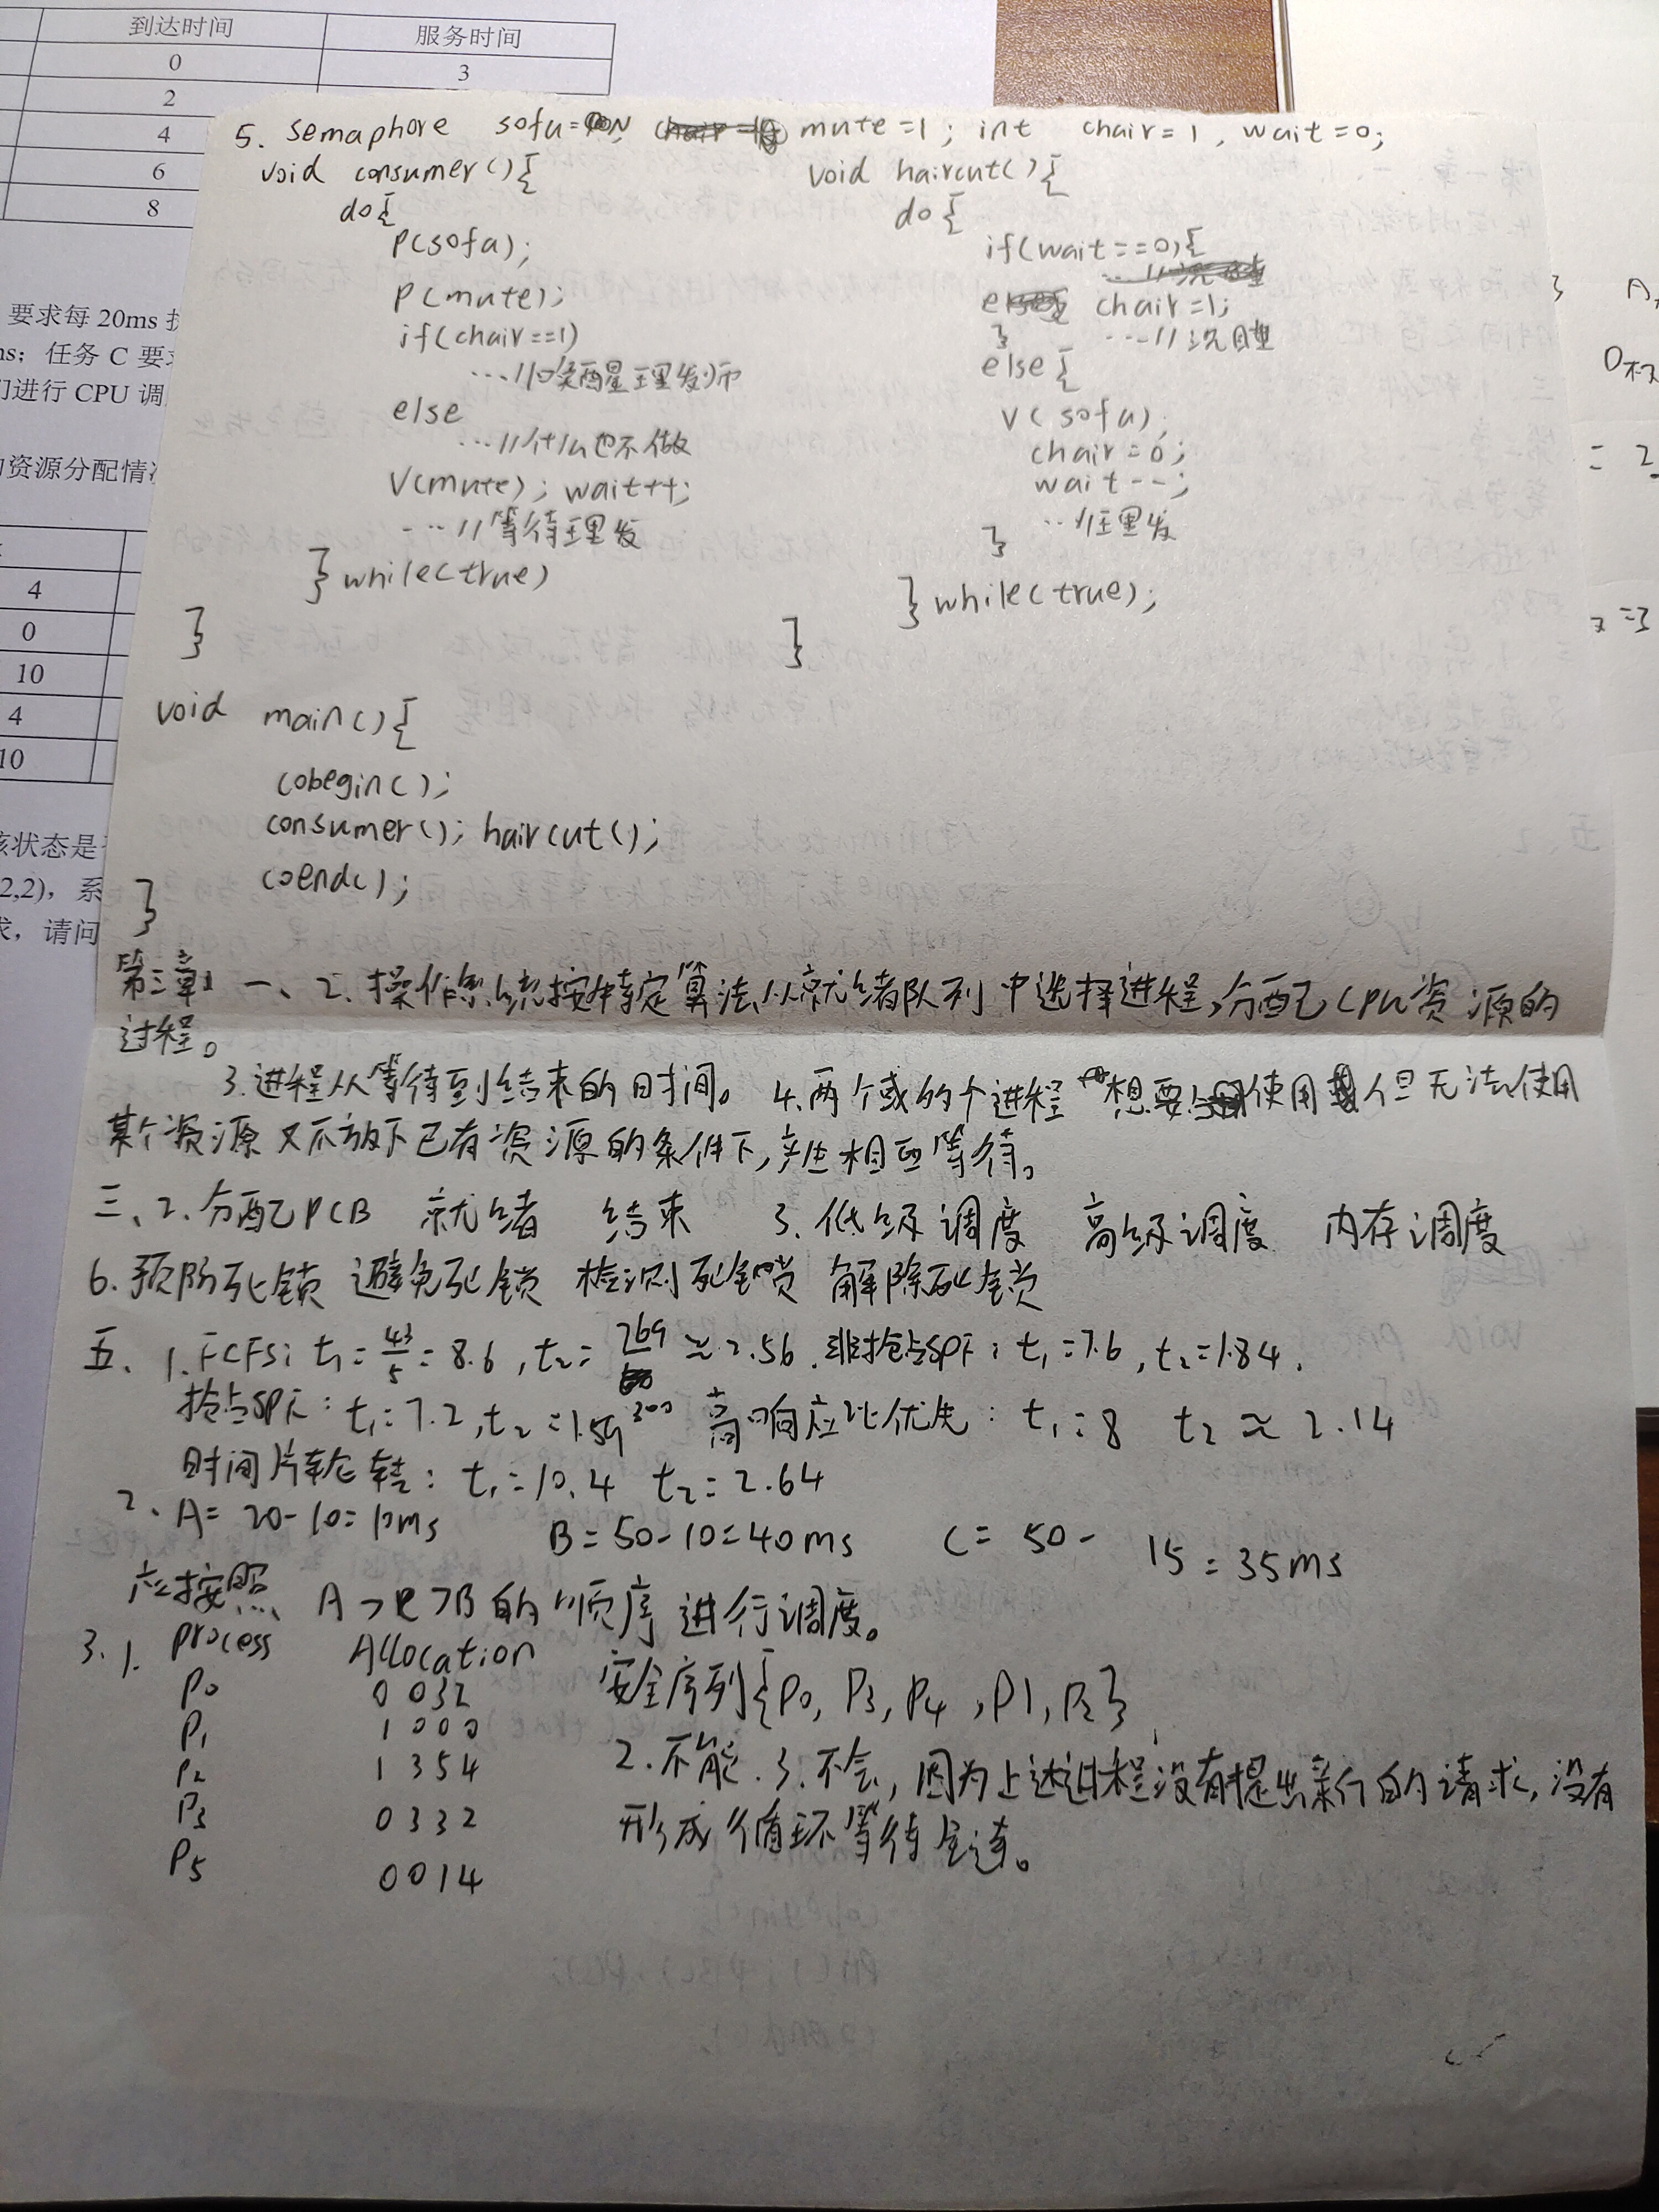 到达时间 服务时间
0 3
2
4
6
8
要求每 20ms 执
ms；任务 C 要求
们进行 CPU 调
的资源分配情况
4
0
10
4
10
该状态是
2,2)，系
求，请问
5. semaphore sofa=N, mute=1; int chair=1, wait=0;
void consumer(){
do{
P(sofa);
P(mute);
if(chair==1)
...//唤醒理发师
else
...//什么也不做
V(mute); wait++;
...//等待理发
}while(true)
}
void haircut(){
do{
if(wait==0){
chair=1;
} ...//沉睡
else{
V(sofa);
chair=0;
wait--;
} ...//理发
}while(true);
}
void main(){
cobegin();
consumer(); haircut();
coend();
}
第三章 一、2.操作系统按特定算法从就绪队列中选择进程,分配CPU资源的
过程。
3.进程从等待到结束的时间。 4.两个或的个进程 想要 使用 但无法使用
某个资源又不放下已有资源的条件下,产生相互等待。
三、2.分配PCB 就绪 结束 3.低级调度 高级调度 内存调度
6.预防死锁 避免死锁 检测死锁 解除死锁
五、1.FCFS: t₁=43/5=8.6, t₂=769/300≈2.56. 非抢占SPF: t₁=7.6, t₂=1.84.
抢占SPF: t₁=7.2, t₂=1.59 高响应比优先: t₁=8 t₂≈2.14
时间片轮转: t₁=10.4 t₂=2.64
2. A=20-10=10ms B=50-10=40ms C=50-15=35ms
应按照 A>C>B的顺序进行调度。
3. 1. process Allocation
P0 0032 安全序列{P0, P3, P4, P1, P2}
P1 1000
P2 1354 2.不能. 3.不会,因为上述进程没有提出新的请求,没有
P3 0332 形成循环等待
P5 0014